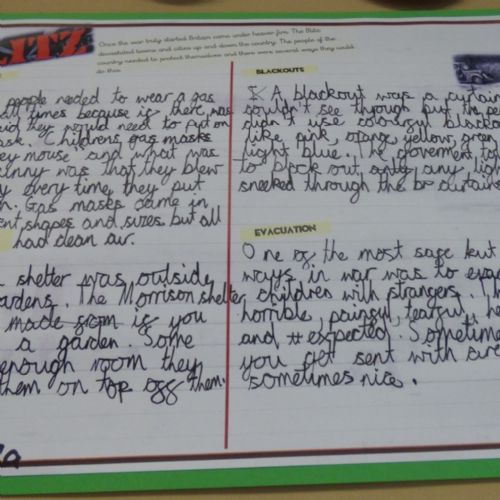 LITZ
Once the war truly started Britain came under heavier fire. The Blitz
devastated towns and cities up and down the country. The people of the
country needed to protect themselves and there were several ways they could
do this.
people needed to wear a gas
times because is there was
they would need to put on
ask. Childrens gas masks
mouse and what was
unny was that they blew
every time they put
Gas masks came in
ent shapes and sizes but all
had clean air.
shelter was outside
ardens. The Morrison shelter
made from is you
a garden. Some
enough room they
them on top ogg them.
BLACKOUTS
A blackout was a curtain
couldn't see through but the pe
didn't use colourful black
like pink, orange, yellow, green
light blue. The goverment to
to black out any lig
sneeked through the curtain
EVACUATION
One of the most safe but
ways in war was to evac
children with strangers.
horrible, painful, tearful, he
and expected. Sometime
you got sent with
sometimes nice.